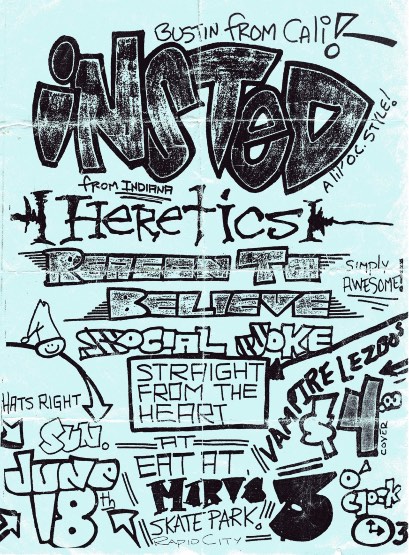 BUSTIN FROM CALi!
iNSTeD
A lil' O.C. STYLE!
from INDIANA
HERETICS
REASON TO
BELIEVE
SIMPLY
AWESOME!
SOCIAL JOKE
STRAIGHT
FROM THE
HEART
VAMPIRE LEZBOS
$4
COVER
THATS RIGHT
SUN.
JUNE
18th
AT
EAT AT
MARVS
SKATE PARK!
RADIO CITY
3
O'CLOCK
3